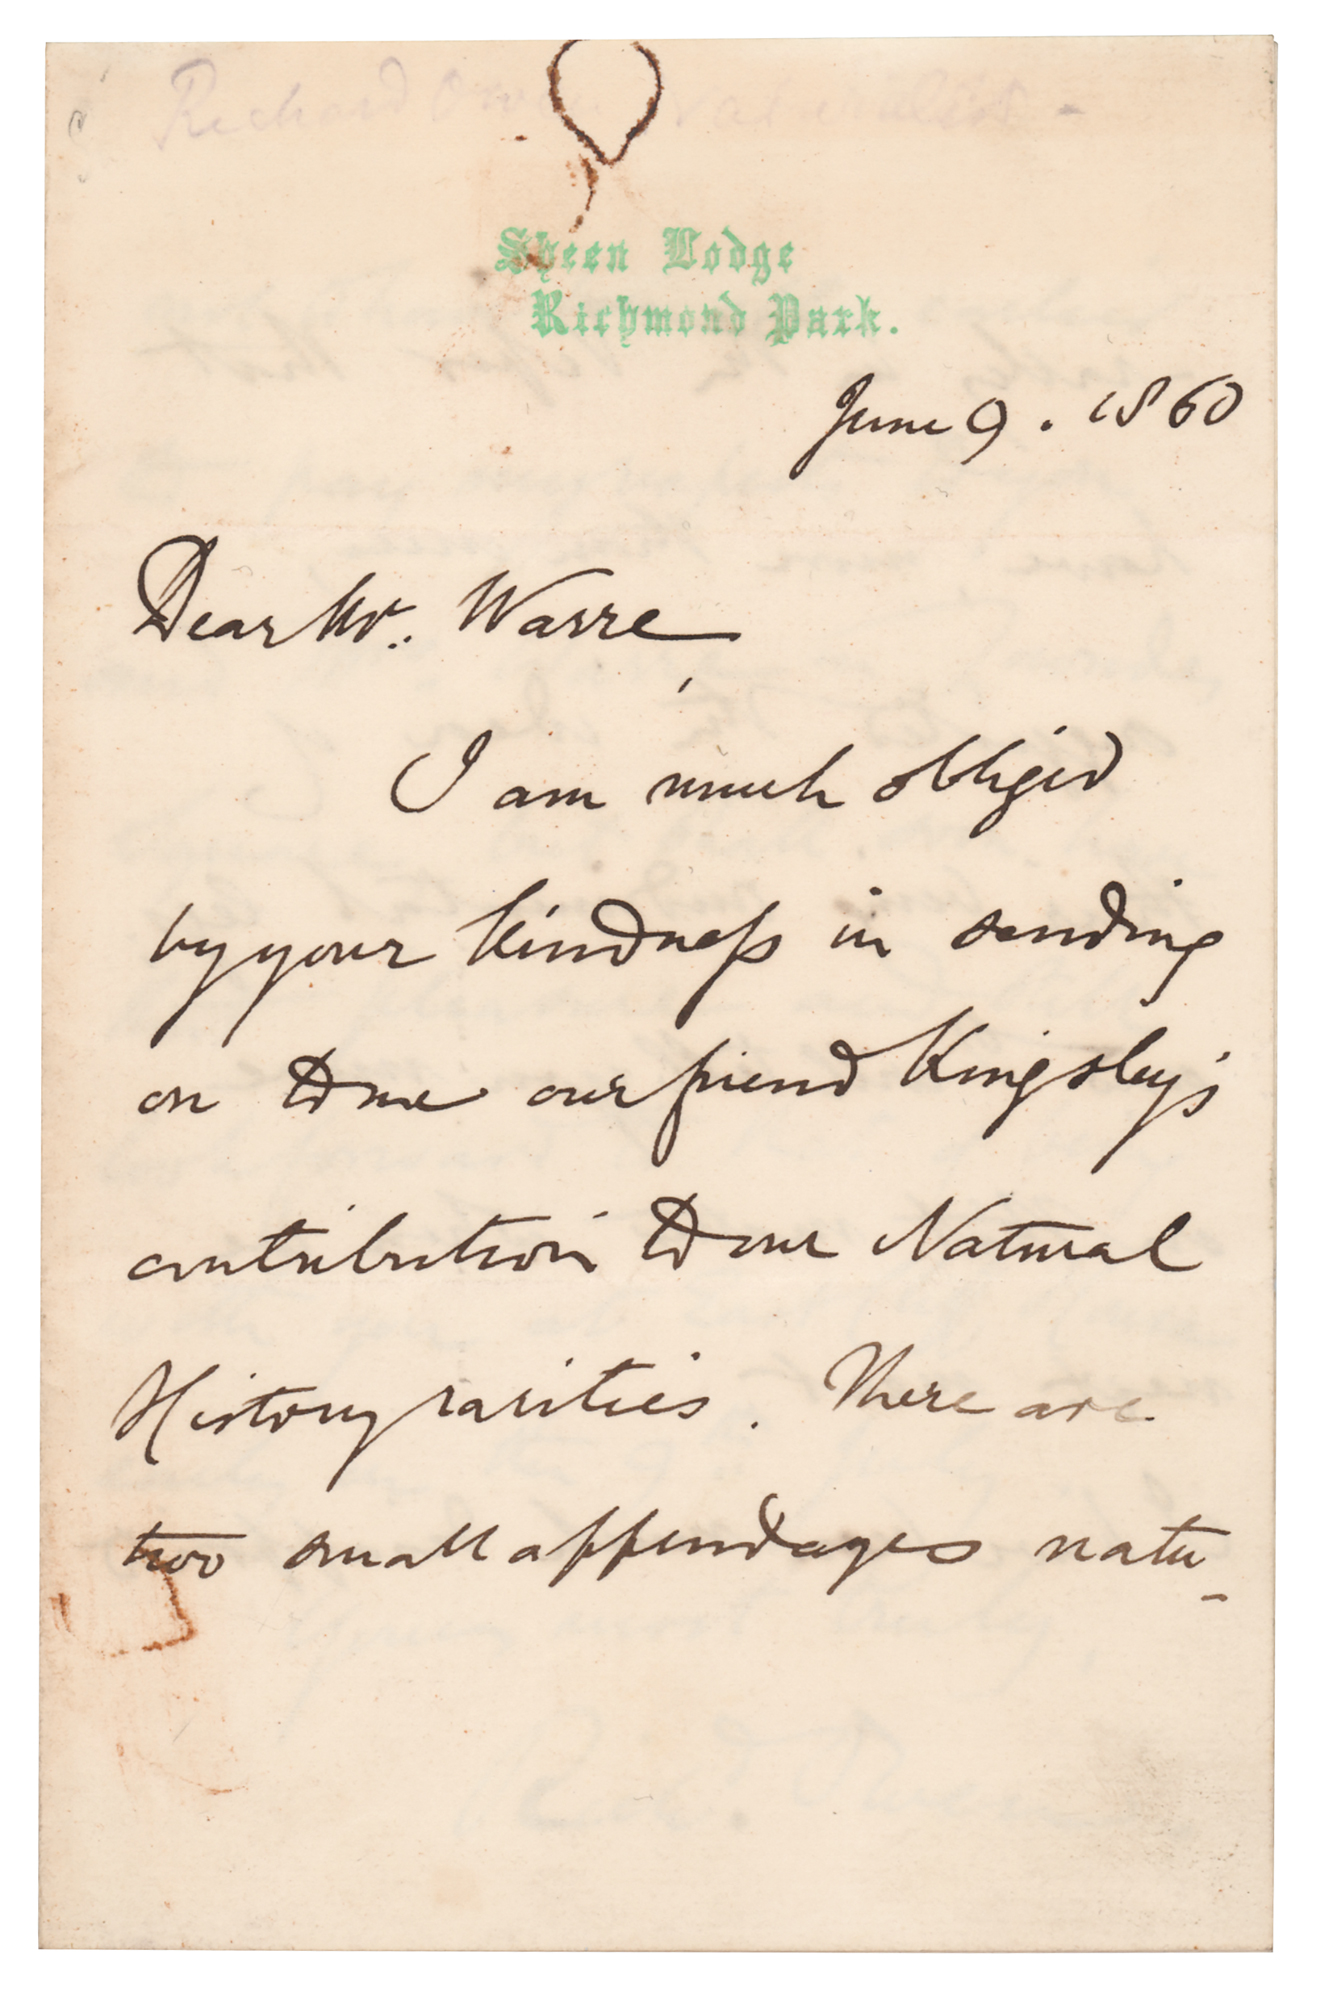 Richard Owen Naturalist -
Sheen Lodge
Richmond Park.
June 9. 1860
Dear Mr. Warre,
I am much obliged
by your kindness in sending
on to me our friend Kingsley's
contribution to our Natural
History rarities. There are
two small appendages natu-